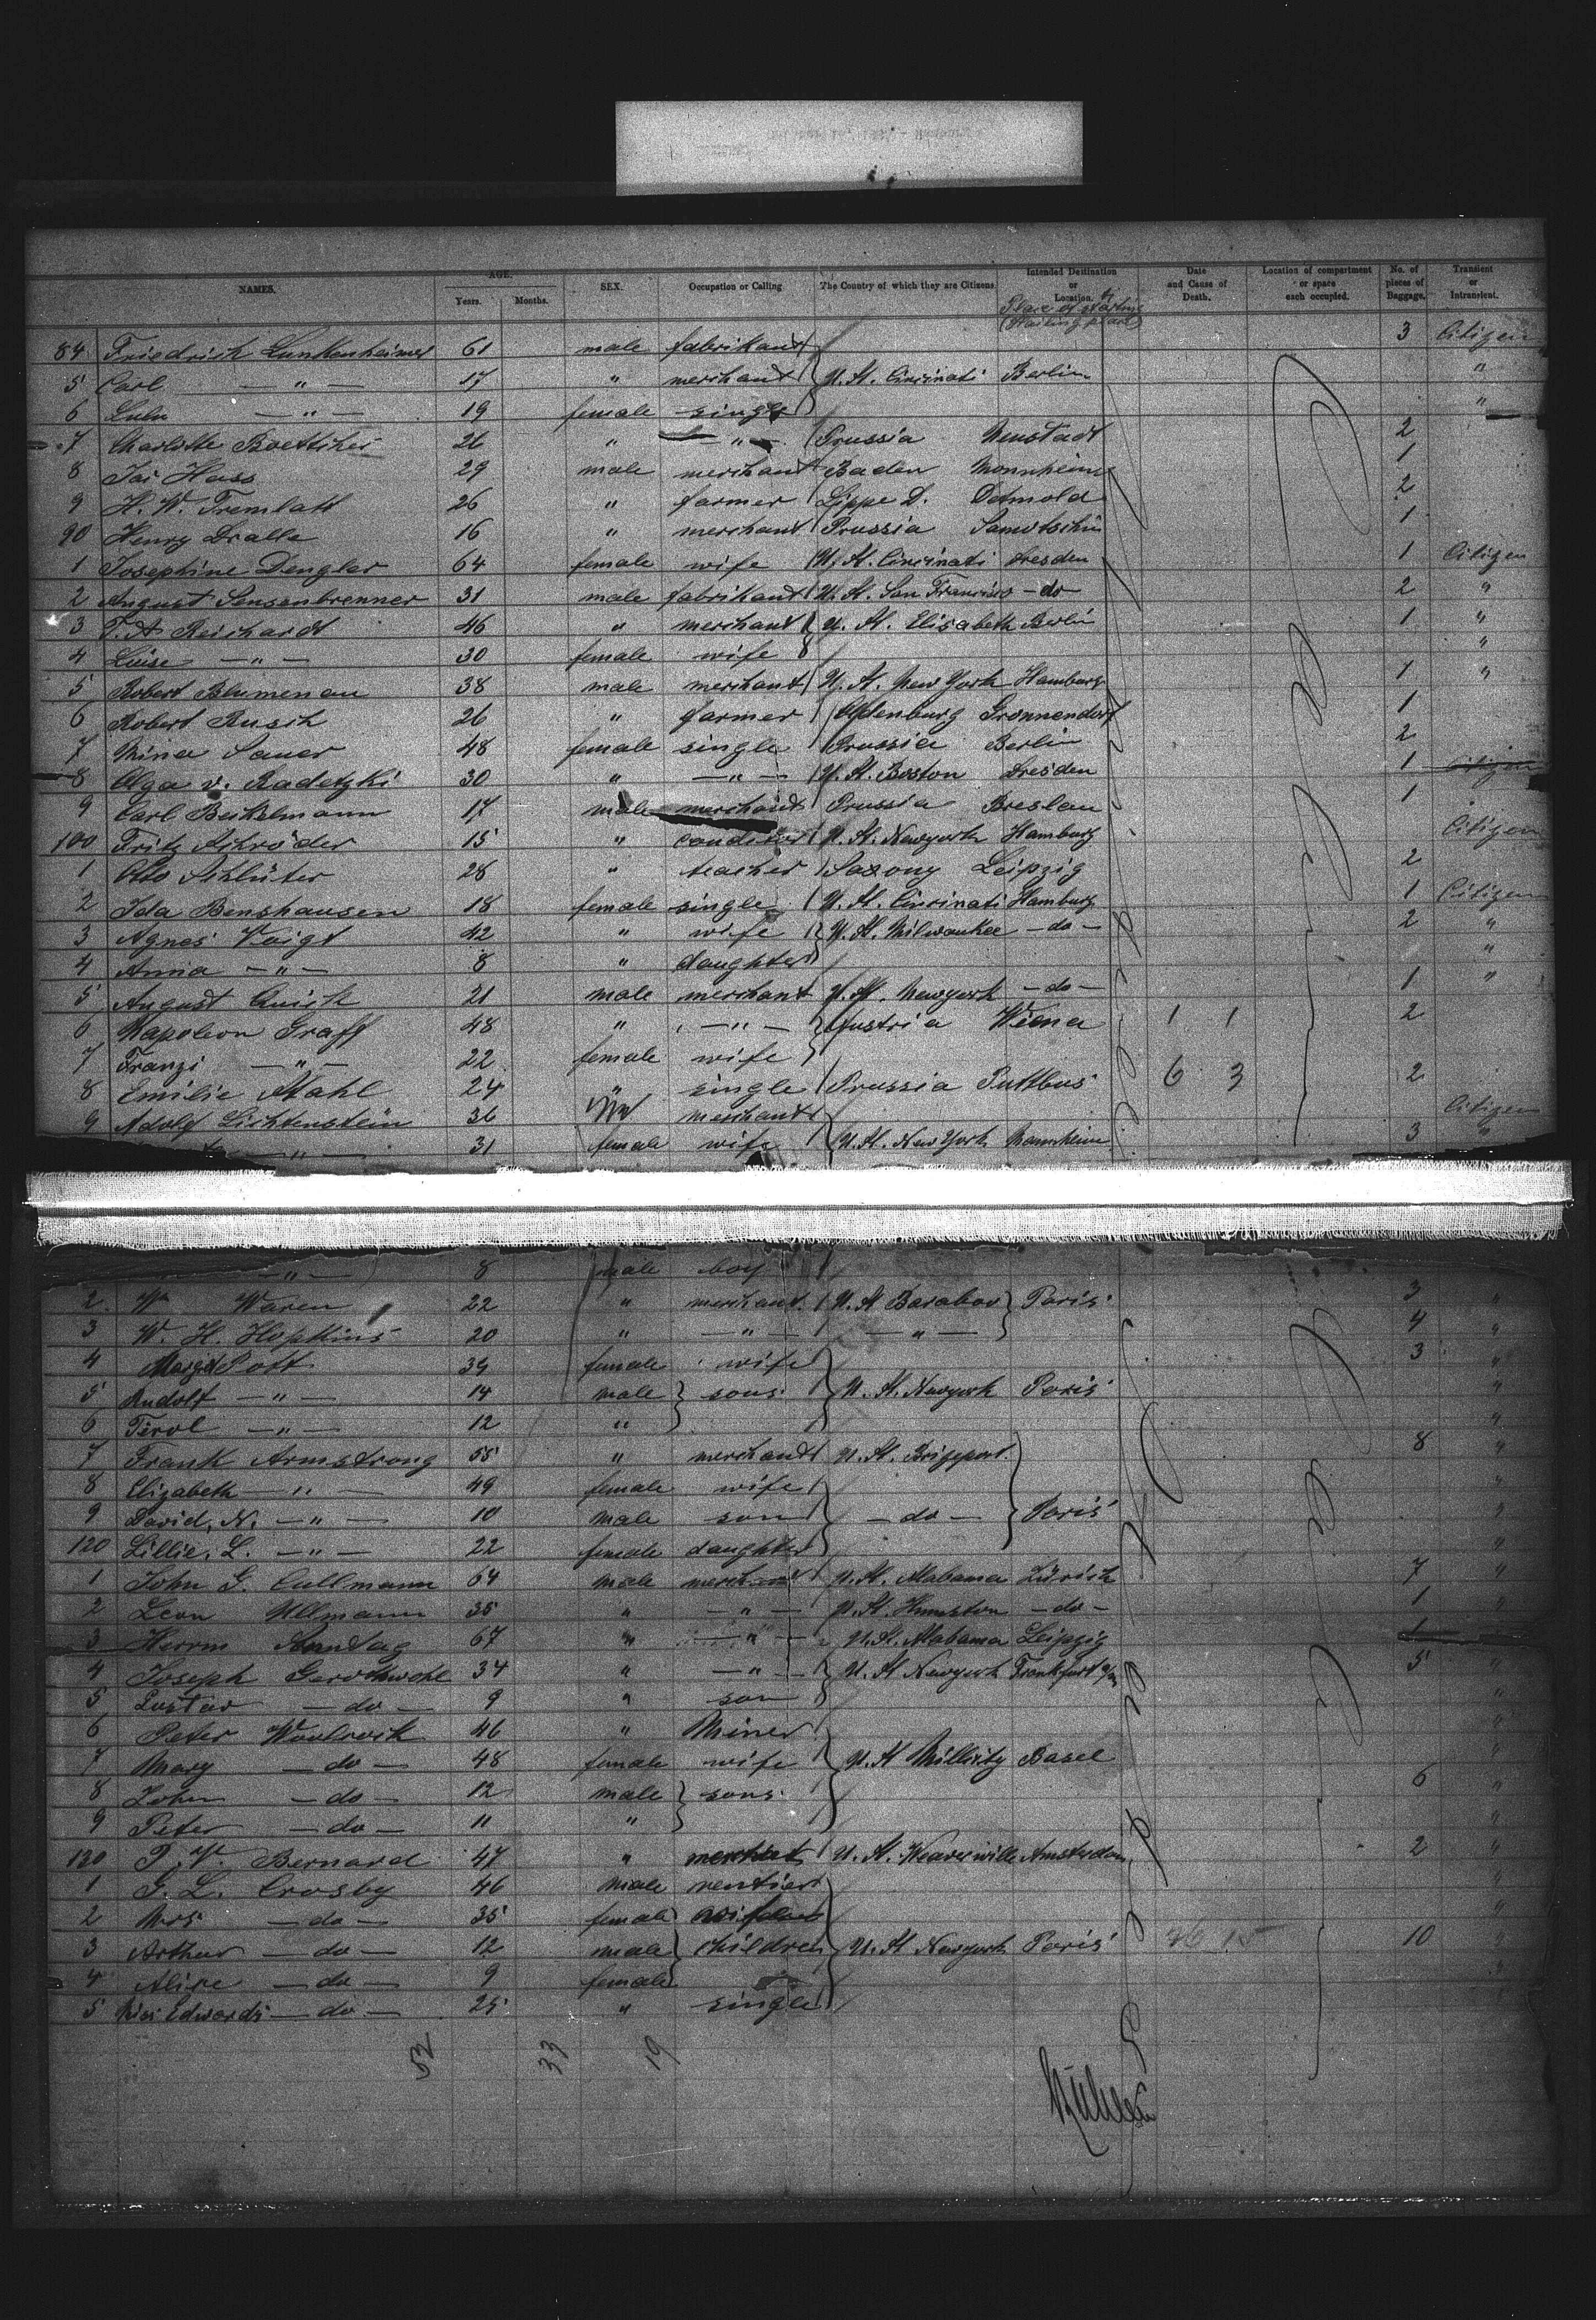 NAMES. AGE. Years. Months. SEX. Occupation or Calling The Country of which they are Citizens. Intended Destination or Location. Date and Cause of Death. Location of compartment or space each occupied. No. of pieces of Baggage. Transient or Intransient.
Place of starting
84 Friedrich Lunkenheimer 61 male fabrikant 3 Citizen
5 Carl — " — 17 " merchant U. St. Cincinati Berlin "
6 Lulu — " — 19 female single "
7 Charlotte Boetticher 26 " — " — Prussia Neustadt 2
8 Hass 29 male merchant Baden Mannheim 1
9 H. W. Tremlatt 26 " farmer Lippe D. Detmold 2
90 Henry Dralle 16 " merchant Prussia 1
1 Josephine Dengler 64 female wife U. St. Cincinati Dresden 1 Citizen
2 August Sensenbrenner 31 male fabrikant U. St. San Francisco — do 2 "
3 Reichardt 46 " merchant U. St. Elisabeth Berlin 1 "
4 Luise — " — 30 female wife "
5 Robert Blumenau 38 male merchant U. St. New York Hamburg 1 "
6 Robert Busch 26 " farmer Oldenburg 1
7 Mina Sauer 48 female single Prussia Berlin 2
8 Olga v. Radetzki 30 " — " — U. St. Boston Dresden 1 Citizen
9 Carl 17 male merchant Prussia Breslau 1
100 Fritz Schröder 15 " conditor U. St. Newyork Hamburg Citizen
1 Otto Schlüter 28 " teacher Saxony Leipzig 2
2 Ida Benshausen 18 female single U. St. Cincinati Hamburg 1 Citizen
3 Agnes Voigt 42 " wife U. St. Milwaukee — do — 2 "
4 Anna — " — 8 " daughter "
5 August Quick 21 male merchant U. St. Newyork — do — 1 "
6 Napoleon Graff 48 " — " — Austria Wiena 1 1 2
7 Franzi — " — 22 female wife
8 Emilie Stahl 24 " single Prussia Puttbus 6 3 2
9 Adolf Lichtenstein 36 merchant Citizen
— " — 31 female wife U. St. New York Mannheim 3 "
— " — 8 male boy
2 Wm Waren 22 " merchant U. St Baraboo Paris 3 "
3 W. H. Hopkins 20 " — " — — " — 4 "
4 Post female wife 3 "
5 Rudolf — " — 14 male sons U. St. Newyork Paris "
6 — " — 12 " "
7 Frank Armstrong 55 " merchant U. St. Brigeport 8 "
8 Elizabeth — " — 49 female wife "
9 David, N. — " — 10 male son — do — Paris "
120 Lillie, L. — " — 22 female daughter "
1 John G. Cullmann 64 male merchant U. St. Alabama Zürich 7 "
2 Leon Ullmann 35 " — " — U. St. — do — 1 "
3 Herrm 67 " — " — U. St. Alabama Leipzig 1
4 Joseph Gerothwohl 34 " — " — U. St Newyork Frankfurt a/m 5 "
5 Gustav — do — 9 " son "
6 Peter 46 " Miner "
7 Mary — do — 48 female wife U. St Basel "
8 John — do — 12 male sons 6 "
9 Peter — do — 11 " "
130 P. V. Bernard 47 " merchant U. St. Weaverville Amsterdam 2 "
1 G. L. Crosby 46 male rentier "
2 Mrs — do — 35 female wife "
3 Arthur — do — 12 male children U. St Newyork Paris 10 "
4 Alice — do — 9 female "
5 Miss Edwards — do — 25 " single
52 33 19